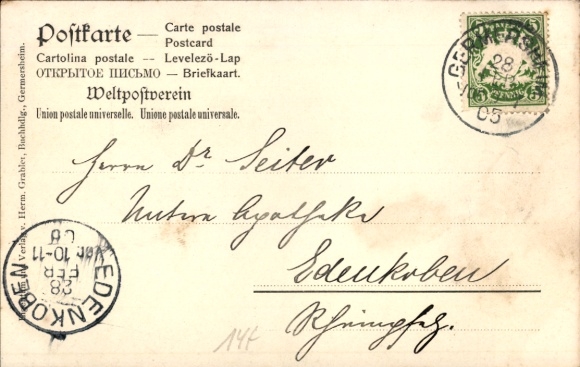 Postkarte — Carte postale
Postcard
Cartolina postale -- Levelező-Lap
ОТКРЫТОЕ ПИСЬМО — Briefkaart.
Weltpostverein
Union postale universelle. Unione postale universale.
Verlag v. Herm. Grahler, Buchhdlg., Germersheim.
GERMERSHEIM
28
FEB
05
Herrn Dr Seiter
Untere Apotheke
Edenkoben
Rheinpfalz.
EDENKOBEN
28
FEB
10-11
05
14t